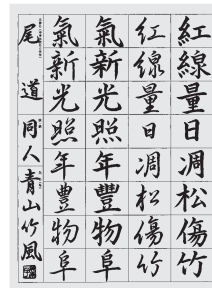 紅線量日凋松傷竹
紅線量日凋松傷竹
氣新光照年豐物阜
氣新光照年豐物阜
尾道 同人 青山竹風